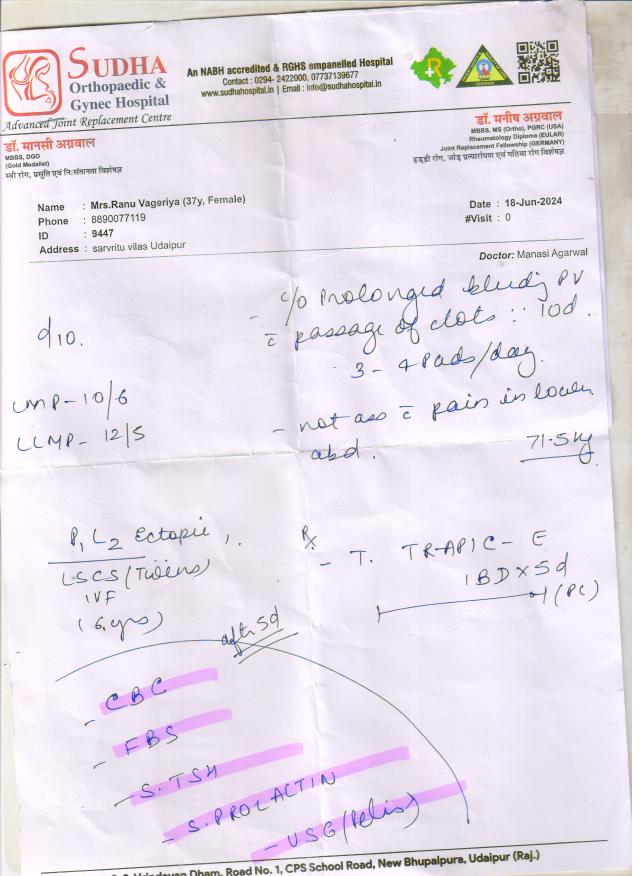 SUDHA
Orthopaedic &
Gynec Hospital
Advanced Joint Replacement Centre
An NABH accredited & RGHS empanelled Hospital
Contact : 0294- 2422000, 07737139677
www.sudhahospital.in | Email : info@sudhahospital.in
डॉ. मानसी अग्रवाल
MBBS, DGO
(Gold Medalist)
स्त्री रोग, प्रसुति एवं निःसंतानता विशेषज्ञ
डॉ. मनीष अग्रवाल
MBBS, MS (Ortho), PGRC (USA)
Rheumatology Diploma (EULAR)
Joint Replacement Fellowship (GERMANY)
हड्डी रोग, जोड़ प्रत्यारोपण एवं गठिया रोग विशेषज्ञ
Name : Mrs.Ranu Vageriya (37y, Female)
Phone : 8890077119
ID : 9447
Address : sarvritu vilas Udaipur
Date : 18-Jun-2024
#Visit : 0
Doctor: Manasi Agarwal
- c/o Prolonged bleeding PV
c̄ passage of clots :: 10d.
3 - 4 Pads/day.
- not ass c̄ pain in lower
abd.
71.5 kg
d10.
LMP - 10/6
LLMP - 12/5
P1 L2 Ectopic,
LSCS (Twins)
IVF
(6 yrs)
Rx
- T. TRAPIC - E
1 BD x 5d
(PC)
after 5d
- CBC
- FBS
- S. TSH
- S. PROLACTIN
- USG (Pelvis)
Vrindavan Dham, Road No. 1, CPS School Road, New Bhupalpura, Udaipur (Raj.)